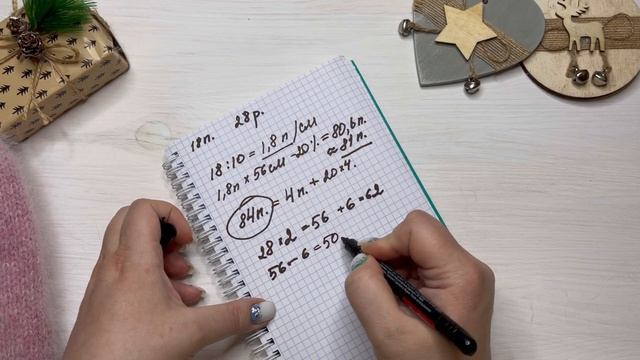 18п. 28р.
18:10 = 1,8п/см
1,8п × 56см -20% = 80,6п.
≈ 81п.
84п. = 4п. + 20×4.
28×2 = 56 + 6 = 62
56 - 6 = 50